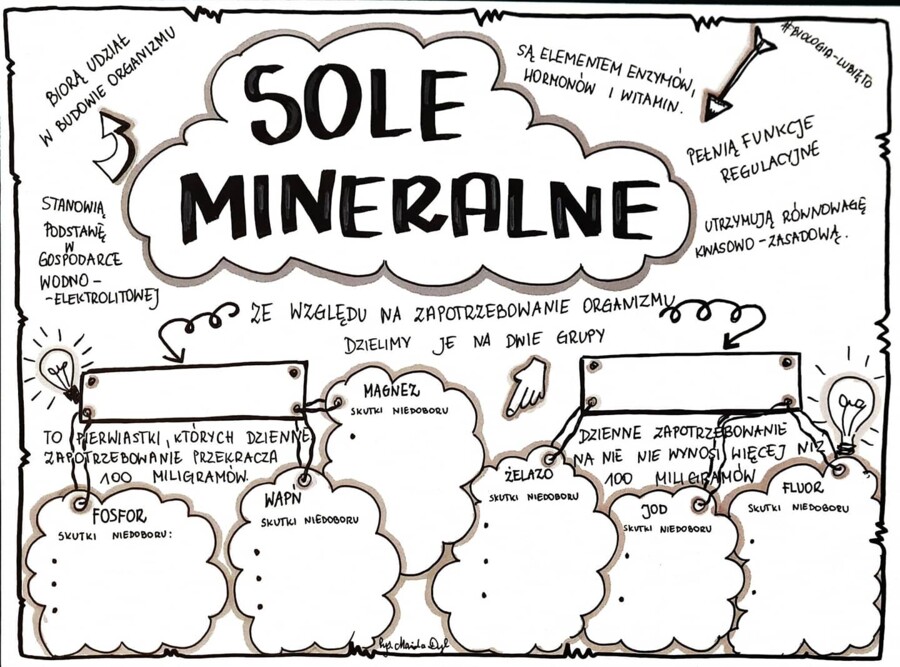 BIORĄ UDZIAŁ
W BUDOWIE ORGANIZMU
SOLE
MINERALNE
SĄ ELEMENTEM ENZYMÓW,
HORMONÓW I WITAMIN.
#BIOLOGIA-LUBIĘTO
PEŁNIĄ FUNKCJE
REGULACYJNE
STANOWIĄ
PODSTAWĘ
W
GOSPODARCE
WODNO-
-ELEKTROLITOWEJ
UTRZYMUJĄ RÓWNOWAGĘ
KWASOWO-ZASADOWĄ.
ZE WZGLĘDU NA ZAPOTRZEBOWANIE ORGANIZMU
DZIELIMY JE NA DWIE GRUPY
TO PIERWIASTKI, KTÓRYCH DZIENNE
ZAPOTRZEBOWANIE PRZEKRACZA
100 MILIGRAMÓW.
MAGNEZ
SKUTKI NIEDOBORU
DZIENNE ZAPOTRZEBOWANIE
NA NIE NIE WYNOSI WIĘCEJ NIŻ
100 MILIGRAMÓW
FOSFOR
SKUTKI NIEDOBORU:
WAPN
SKUTKI NIEDOBORU
ŻELAZO
SKUTKI NIEDOBORU
JOD
SKUTKI NIEDOBORU
FLUOR
SKUTKI NIEDOBORU